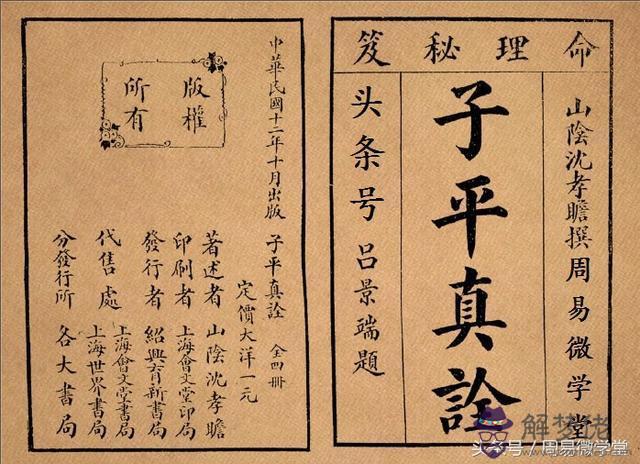 命理秘笈
山陰沈孝瞻撰周易微学堂
子平真詮
头条号呂景端題
中華民國十二年十月出版
版權
所有
子平真詮 全四冊
定價大洋一元
著述者 山陰沈孝瞻
印刷者 上海會文堂印局
發行者 紹興育新書局
代售處 上海會文堂書局
上海世界書局
分發行所 各大書局
解梦佬
头条号／周易微学堂